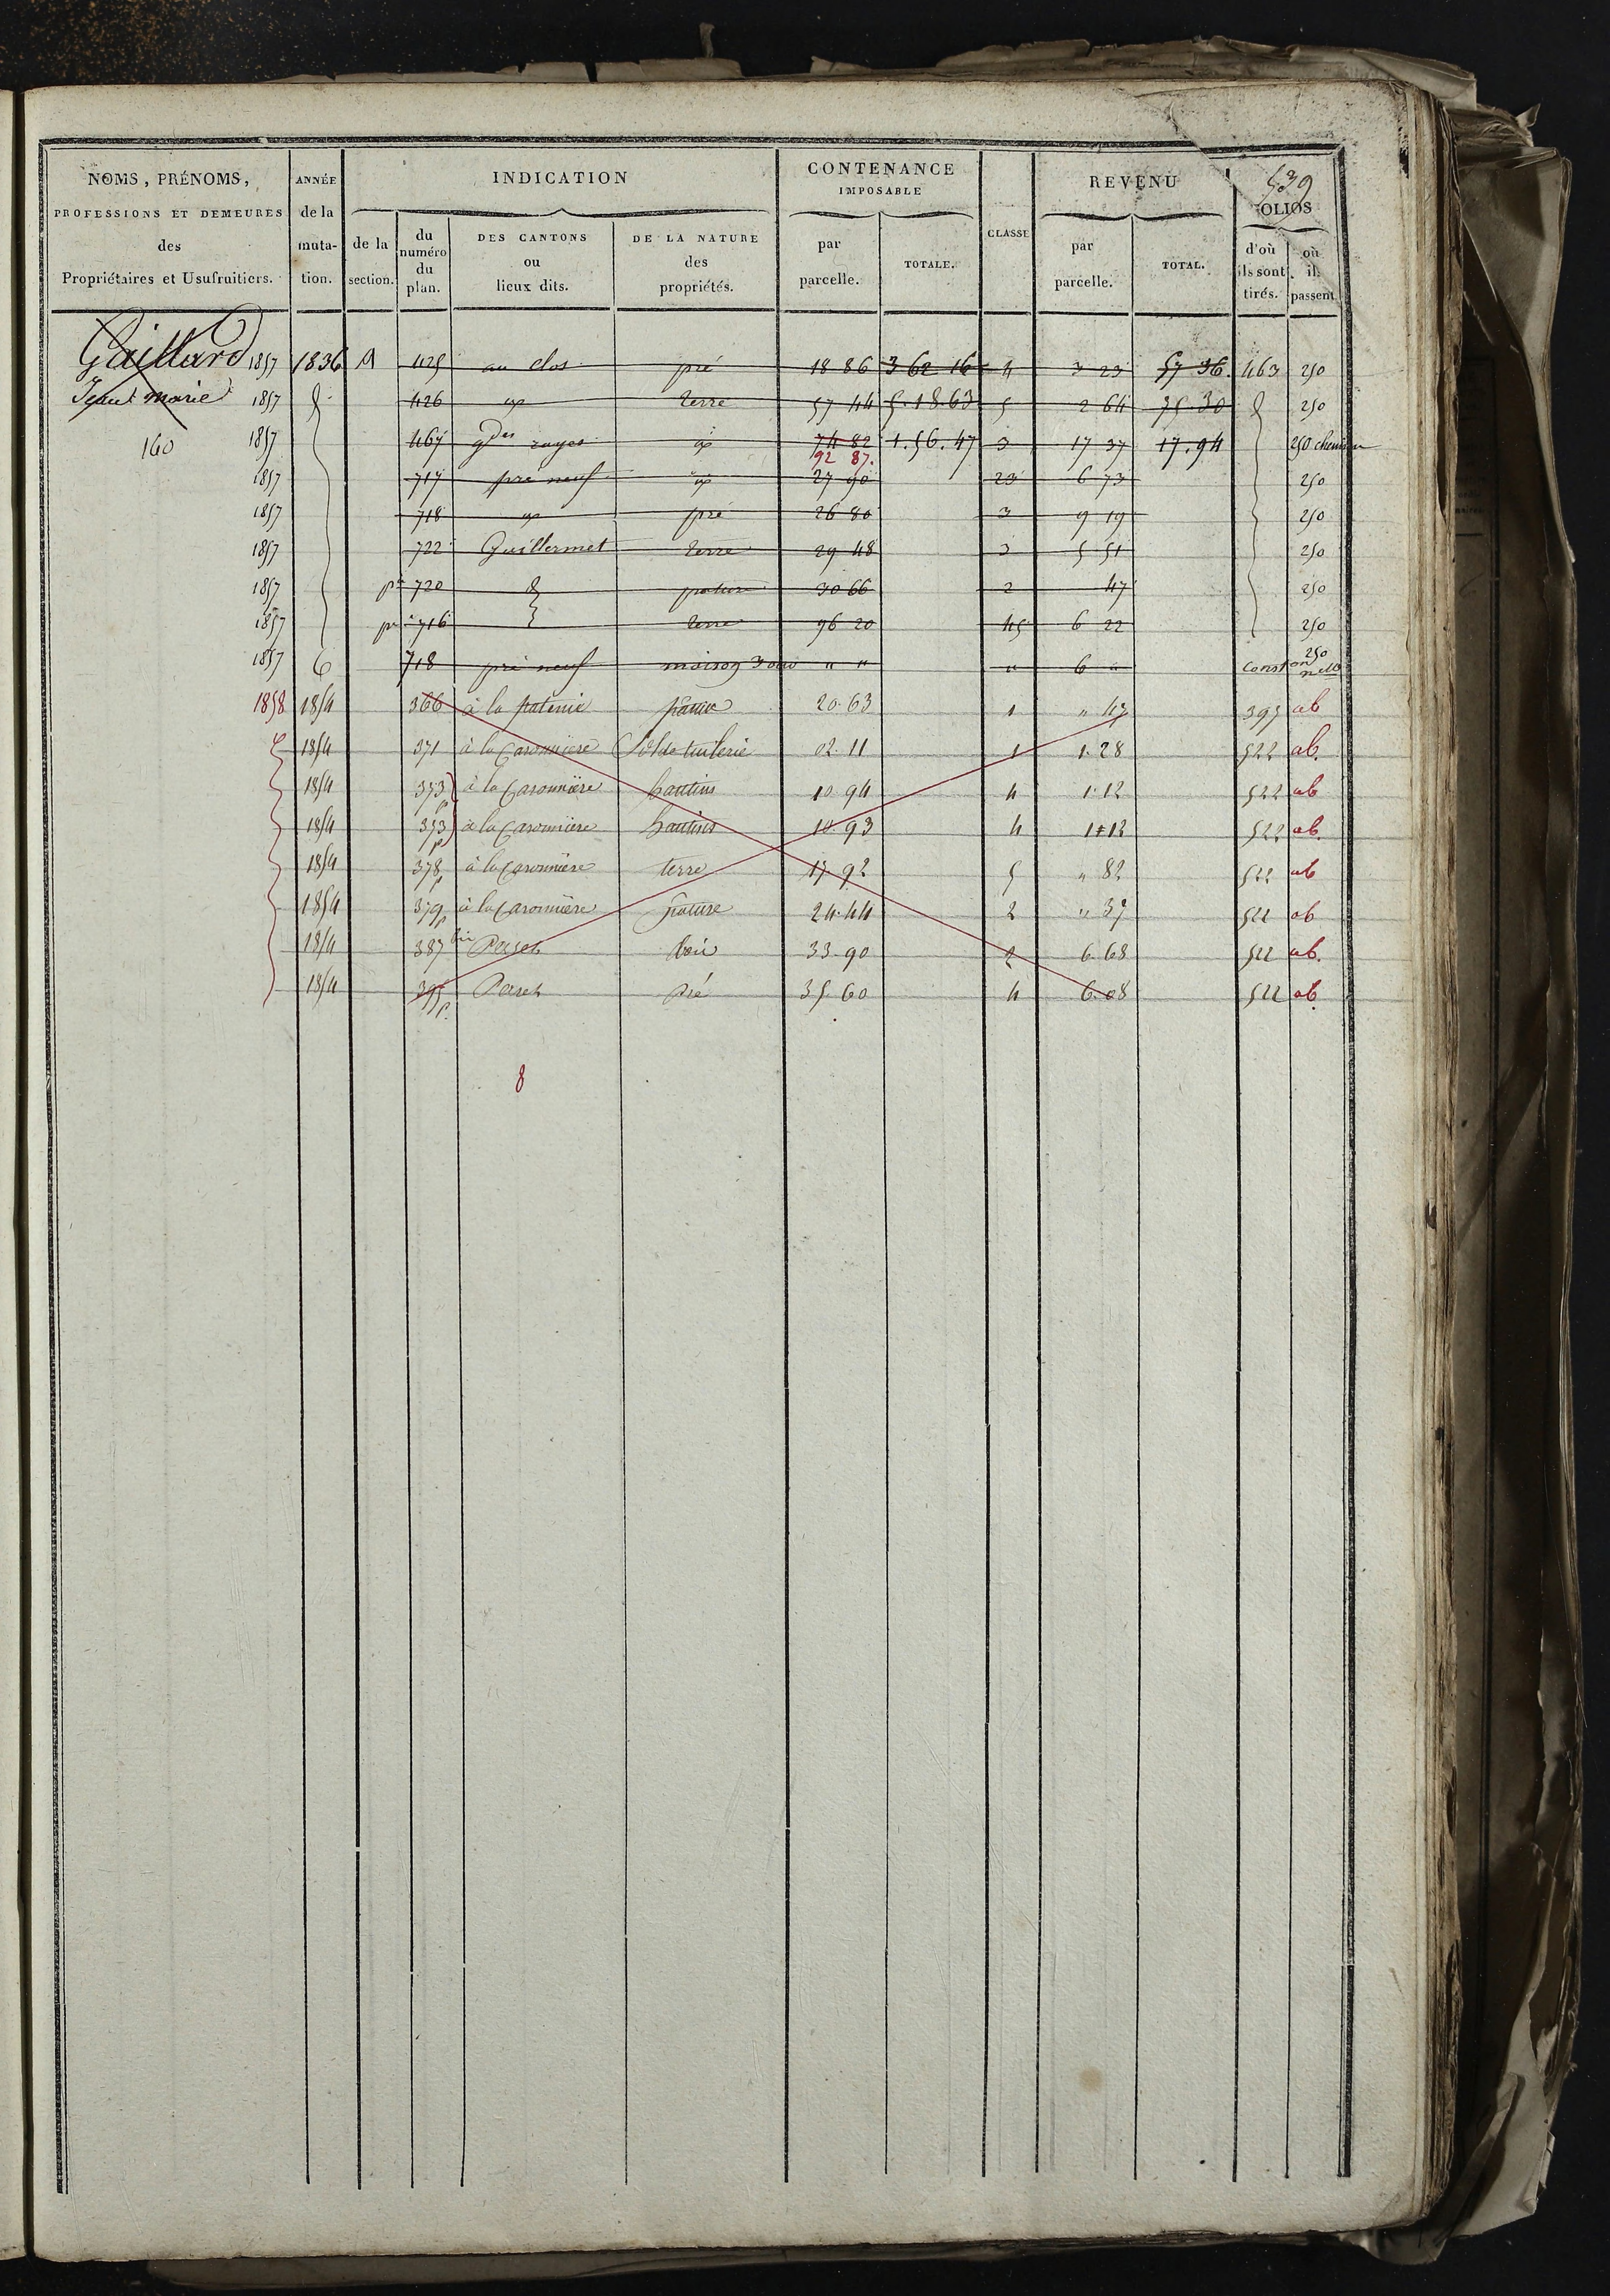 539
NOMS, PRÉNOMS, PROFESSIONS ET DEMEURES des Propriétaires et Usufruitiers.
ANNÉE de la muta-tion.
INDICATION
de la section.
du numéro du plan.
DES CANTONS ou lieux dits.
DE LA NATURE des propriétés.
CONTENANCE IMPOSABLE
par parcelle.
TOTALE.
CLASSE
REVENU
par parcelle.
TOTAL.
OLIOS
d'où ils sont tirés.
où ils passent
Gaillard 1857 1836 A 425 au clos pré 18 86 3 62 16 4 3 23 57 36. 463 250
Jean marie 1857 426 terre 57 44 5.18.63 5 2 64 75.30 250
160 1857 467 gdes rayes 74 82 1.56.47 3 17 37 17.94 250 chemin
92 87.
1857 717 pré neuf 27 90 23 6 73 250
1857 718 pré 26 80 3 9 19 250
1857 722 Guillermet terre 29 48 3 5 51 250
1857 pie 720 pature 30 66 2 47 250
1857 pie 716 terre 96 20 45 6 22 250
1857 718 pré neuf maison 3 ouv " " " 6 " Const on nelle 250
1858 1854 366 à la paturie 20.63 1 " 47 395 ab
1854 371 à la Caronnière Sol de tuilerie 02.11 1 1.28 522 ab.
1854 373 p à la Caronnière hautins 10.94 4 1.12 522 ab
1854 373 p à la Caronnière hautins 10.93 4 1.12 522 ab.
1854 378 p à la Caronnière terre 17.92 5 " 82 522 ab
1854 379 p à la Caronnière pature 24.44 2 " 37 522 ab
1854 387 bis bois 33.90 2 6.68 522 ab.
1854 395 p. pré 35.60 4 6.08 522 ab.
8